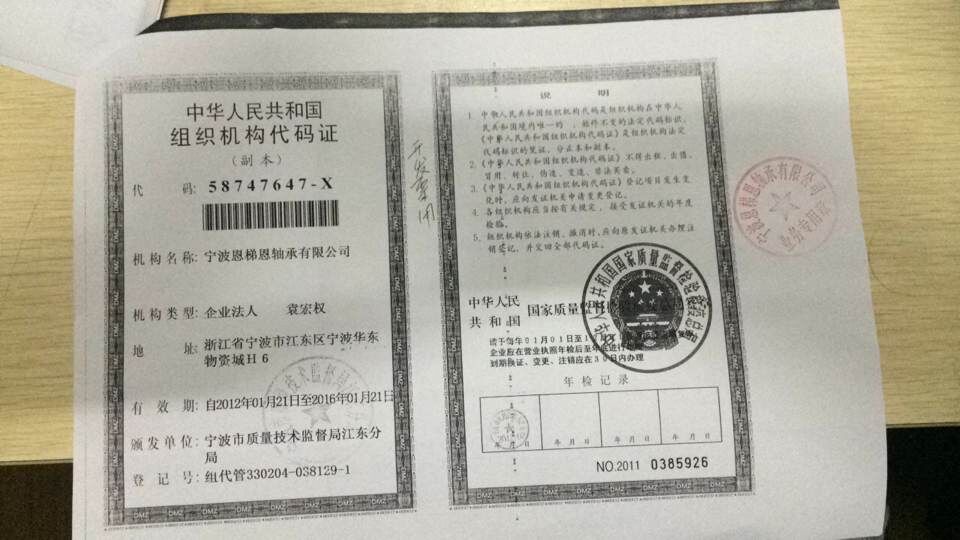 中华人民共和国
组织机构代码证
(副本)
代 码: 58747647-X
机构名称: 宁波恩梯恩轴承有限公司
机构类型: 企业法人 袁宏权
地 址: 浙江省宁波市江东区宁波华东
物资城H6
有 效 期: 自2012年01月21日至2016年01月21日
颁发单位: 宁波市质量技术监督局江东分
局
登 记 号: 组代管330204-038129-1
说 明
1. 中华人民共和国组织机构代码是组织机构在中华人
民共和国境内唯一的、始终不变的法定代码标识,
《中华人民共和国组织机构代码证》是组织机构法定
代码标识的凭证,分正本和副本。
2.《中华人民共和国组织机构代码证》不得出租、出借、
冒用、转让、伪造、变造、非法买卖。
3.《中华人民共和国组织机构代码证》登记项目发生变
化时,应向发证机关申请变更登记。
4. 各组织机构应当按有关规定,接受发证机关的年度
检验。
5. 组织机构依法注销、撤消时,应向原发证机关办理注
销登记,并交回全部代码证。
中华人民
共和国 国家质量监督
请于每年01月01日至
企业应在营业执照年检后至年底进行
到期换证、变更、注销应在30日内办理
年检记录
年 月 日 年 月 日 年 月 日 年 月 日
NO.2011 0385926
开发票用
宁波恩梯恩轴承有限公司